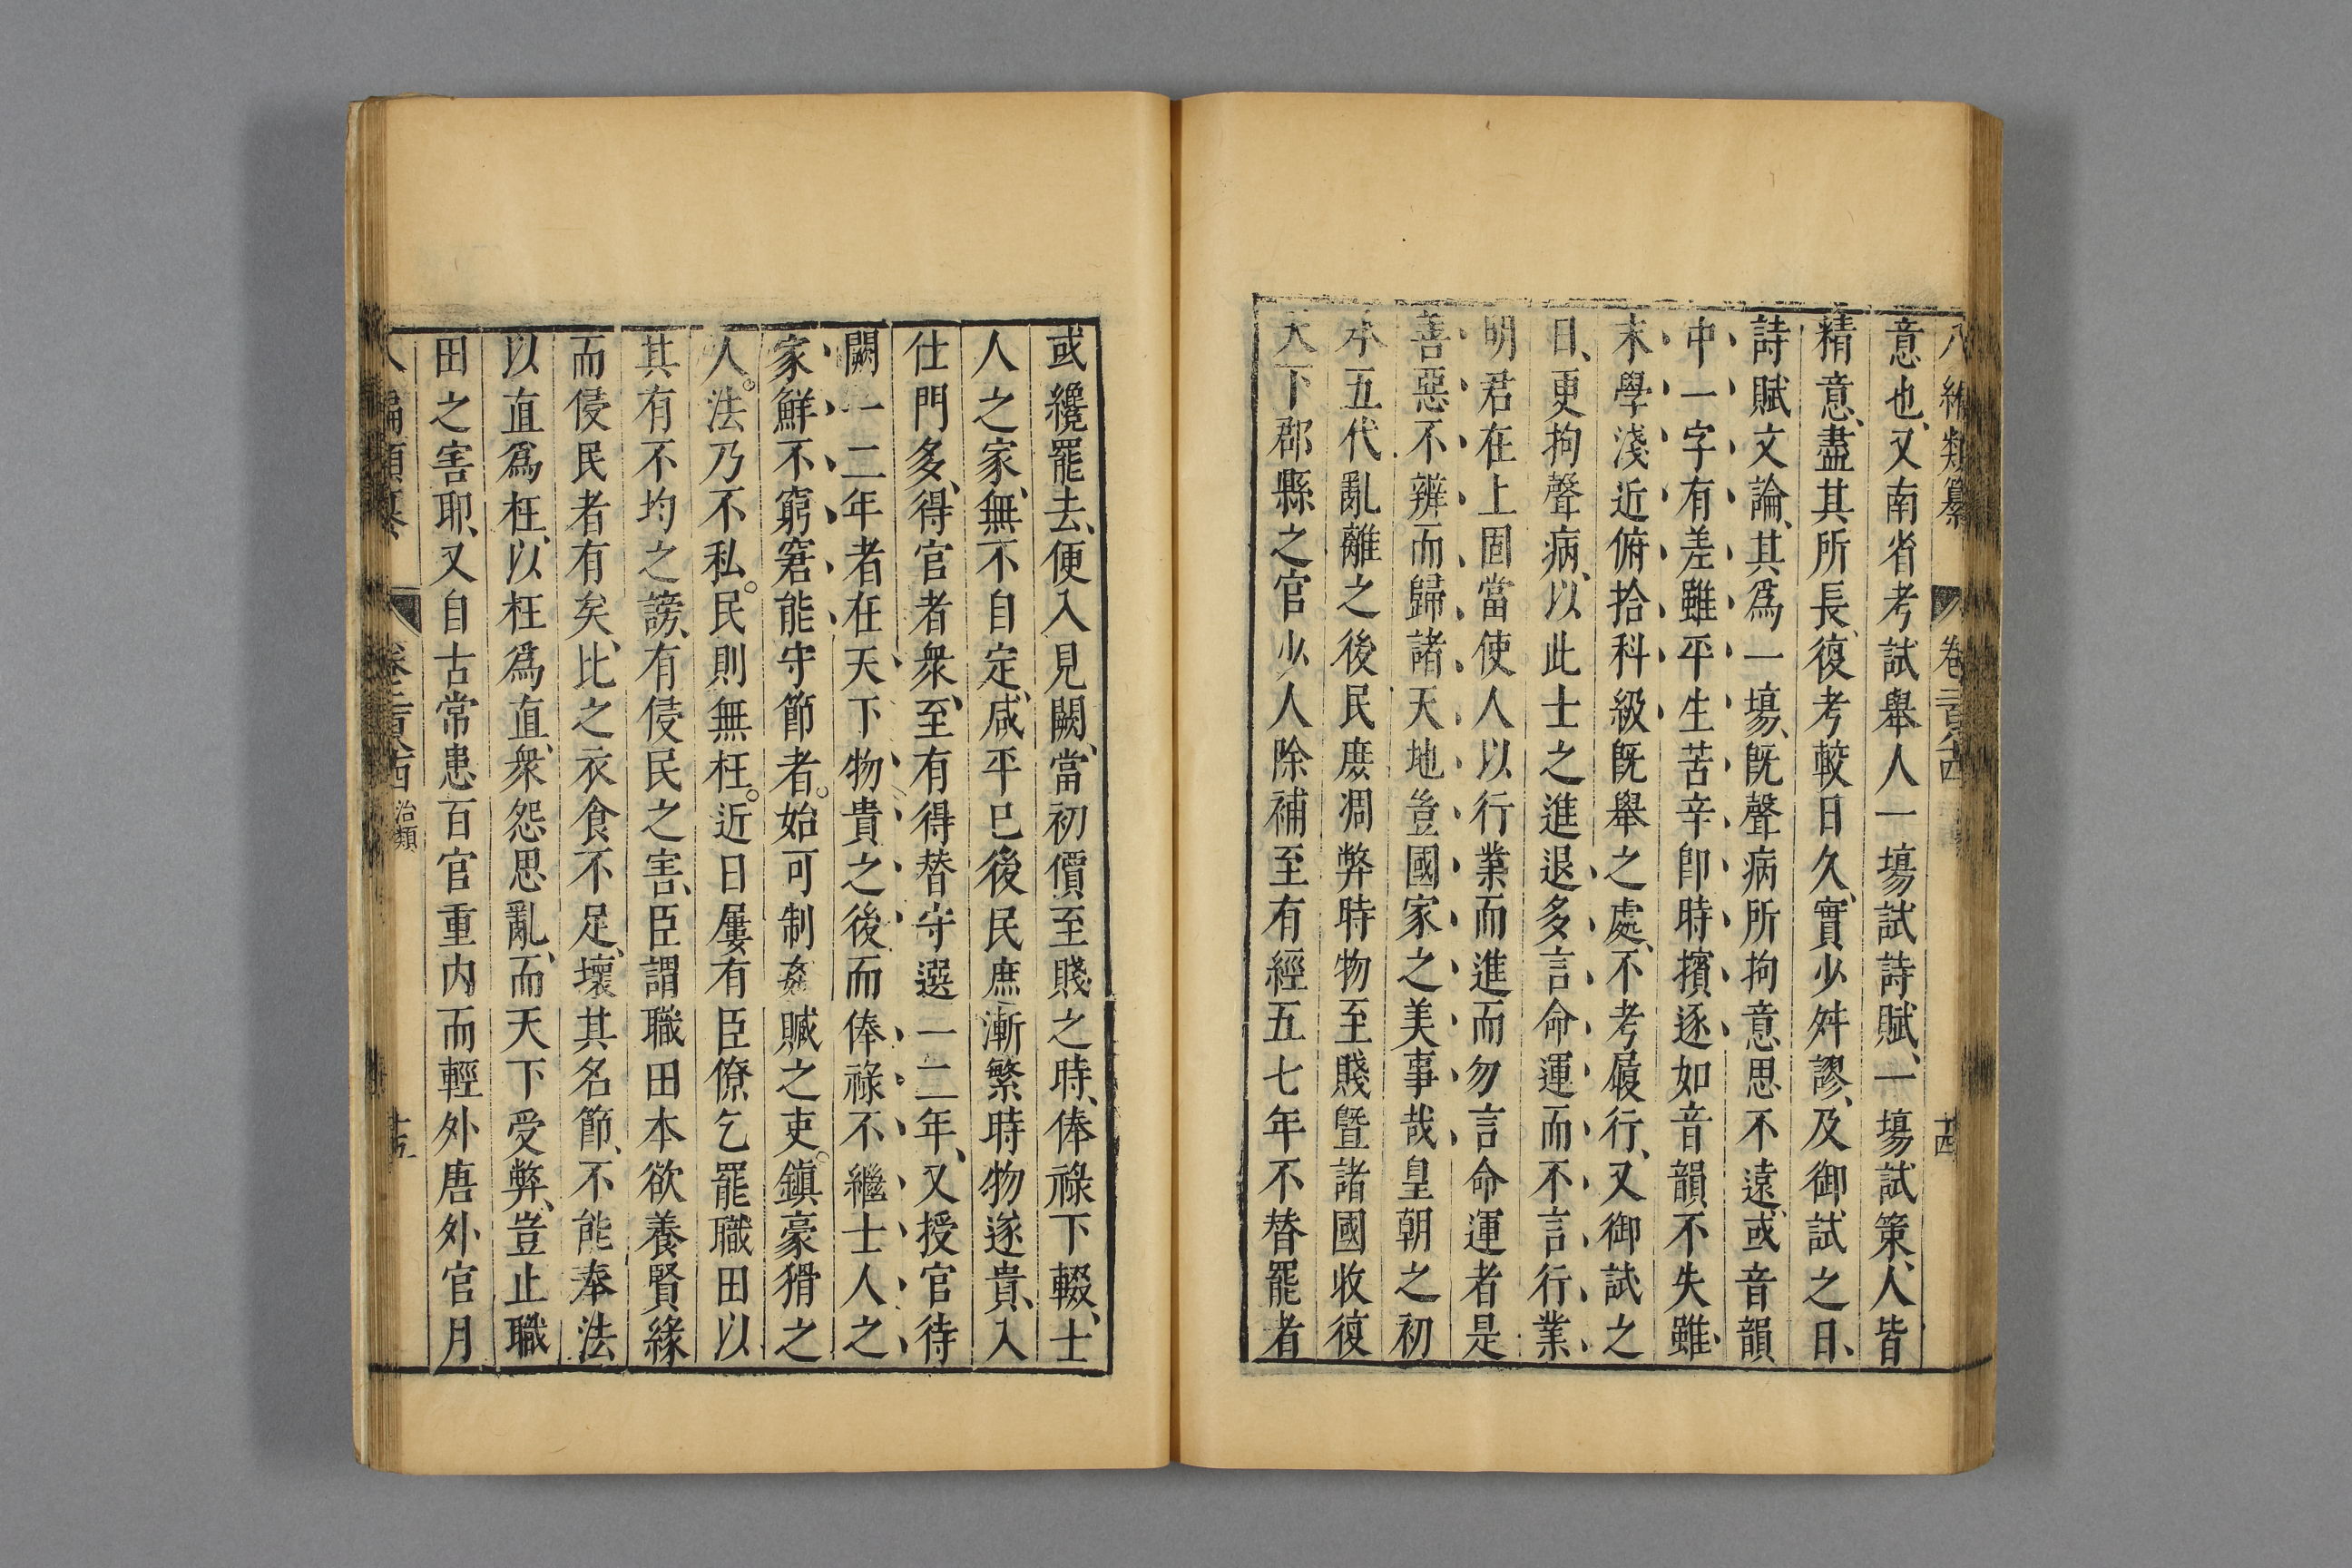 八編類纂 卷二百八十四 十四
意也、又南省考試舉人一塲試詩賦、一塲試策、人皆
精意、盡其所長、復考較日久、實少舛謬、及御試之日、
詩賦文論、其爲一塲、旣聲病所拘意思不遠、或音韻
中一字有差雖平生苦辛卽時擯逐如音韻不失雖
末學淺近俯拾科級旣舉之處、不考履行、又御試之
日、更拘聲病、以此士之進退多言命運而不言行業
明君在上固當使人以行業而進而勿言命運者是
善惡不辨而歸諸天地豈國家之美事哉皇朝之初
承五代亂離之後民庶凋弊時物至賤曁諸國收復
天下郡縣之官少人除補至有經五七年不替罷者
或纔罷去、便入見闕、當初價至賤之時、俸祿下輟、士
人之家、無不自定、咸平已後民庶漸繁時物遂貴、入
仕門多、得官者衆、至有得替守選一二年、又授官待
闕一二年者在天下物貴之後而俸祿不繼士人之
家鮮不窮窘能守節者。始可制姦贓之吏。鎮豪猾之
人。法乃不私。民則無枉。近日屢有臣僚乞罷職田以
其有不均之謗、有侵民之害、臣謂職田本欲養賢緣
而侵民者有矣、比之衣食不足、壞其名節、不能奉法
以直爲枉、以枉爲直、衆怨思亂、而天下受弊、豈止職
田之害耶、又自古常患百官重内而輕外唐外官月
八編類纂 卷二百八十四 治類 十五